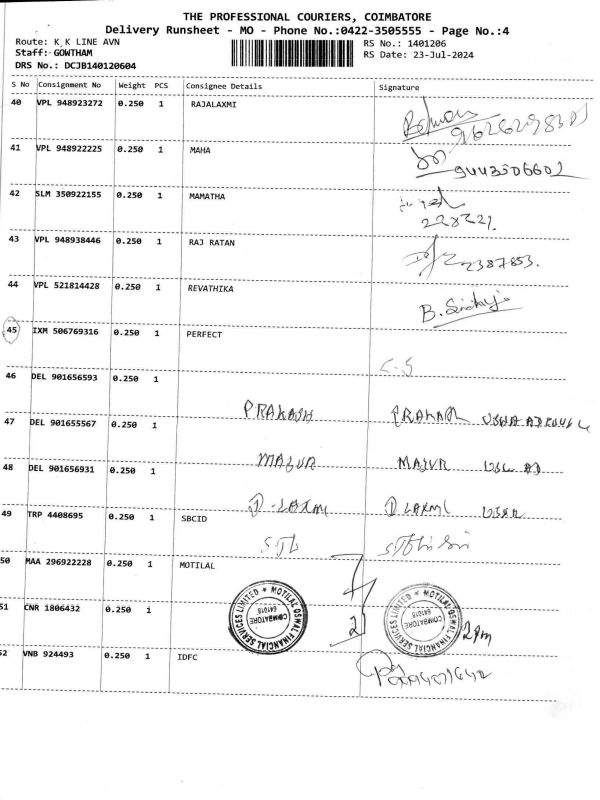 THE PROFESSIONAL COURIERS, COIMBATORE
Delivery Runsheet - MO - Phone No.:0422-3505555 - Page No.:4
Route: K K LINE AVN
RS No.: 1401206
Staff: GOWTHAM
RS Date: 23-Jul-2024
DRS No.: DCJB140120604
S No Consignment No Weight PCS Consignee Details Signature
40 VPL 948923272 0.250 1 RAJALAXMI
41 VPL 948922225 0.250 1 MAHA
9443506602
42 SLM 350922155 0.250 1 MAMATHA
43 VPL 948938446 0.250 1 RAJ RATAN
2387853.
44 VPL 521814428 0.250 1 REVATHIKA
B.
45 IXM 506769316 0.250 1 PERFECT
46 DEL 901656593 0.250 1
PRAKASH
47 DEL 901655567 0.250 1
MAJUR MAJUR
48 DEL 901656931 0.250 1
D. LAXMI D LAXMI
49 TRP 4408695 0.250 1 SBCID
50 MAA 296922228 0.250 1 MOTILAL
51 CNR 1806432 0.250 1
MOTILAL OSWAL FINANCIAL SERVICES LIMITED * COIMBATORE 641018
2
MOTILAL OSWAL FINANCIAL SERVICES LIMITED * COIMBATORE 641018
2 Pm
52 VNB 924493 0.250 1 IDFC